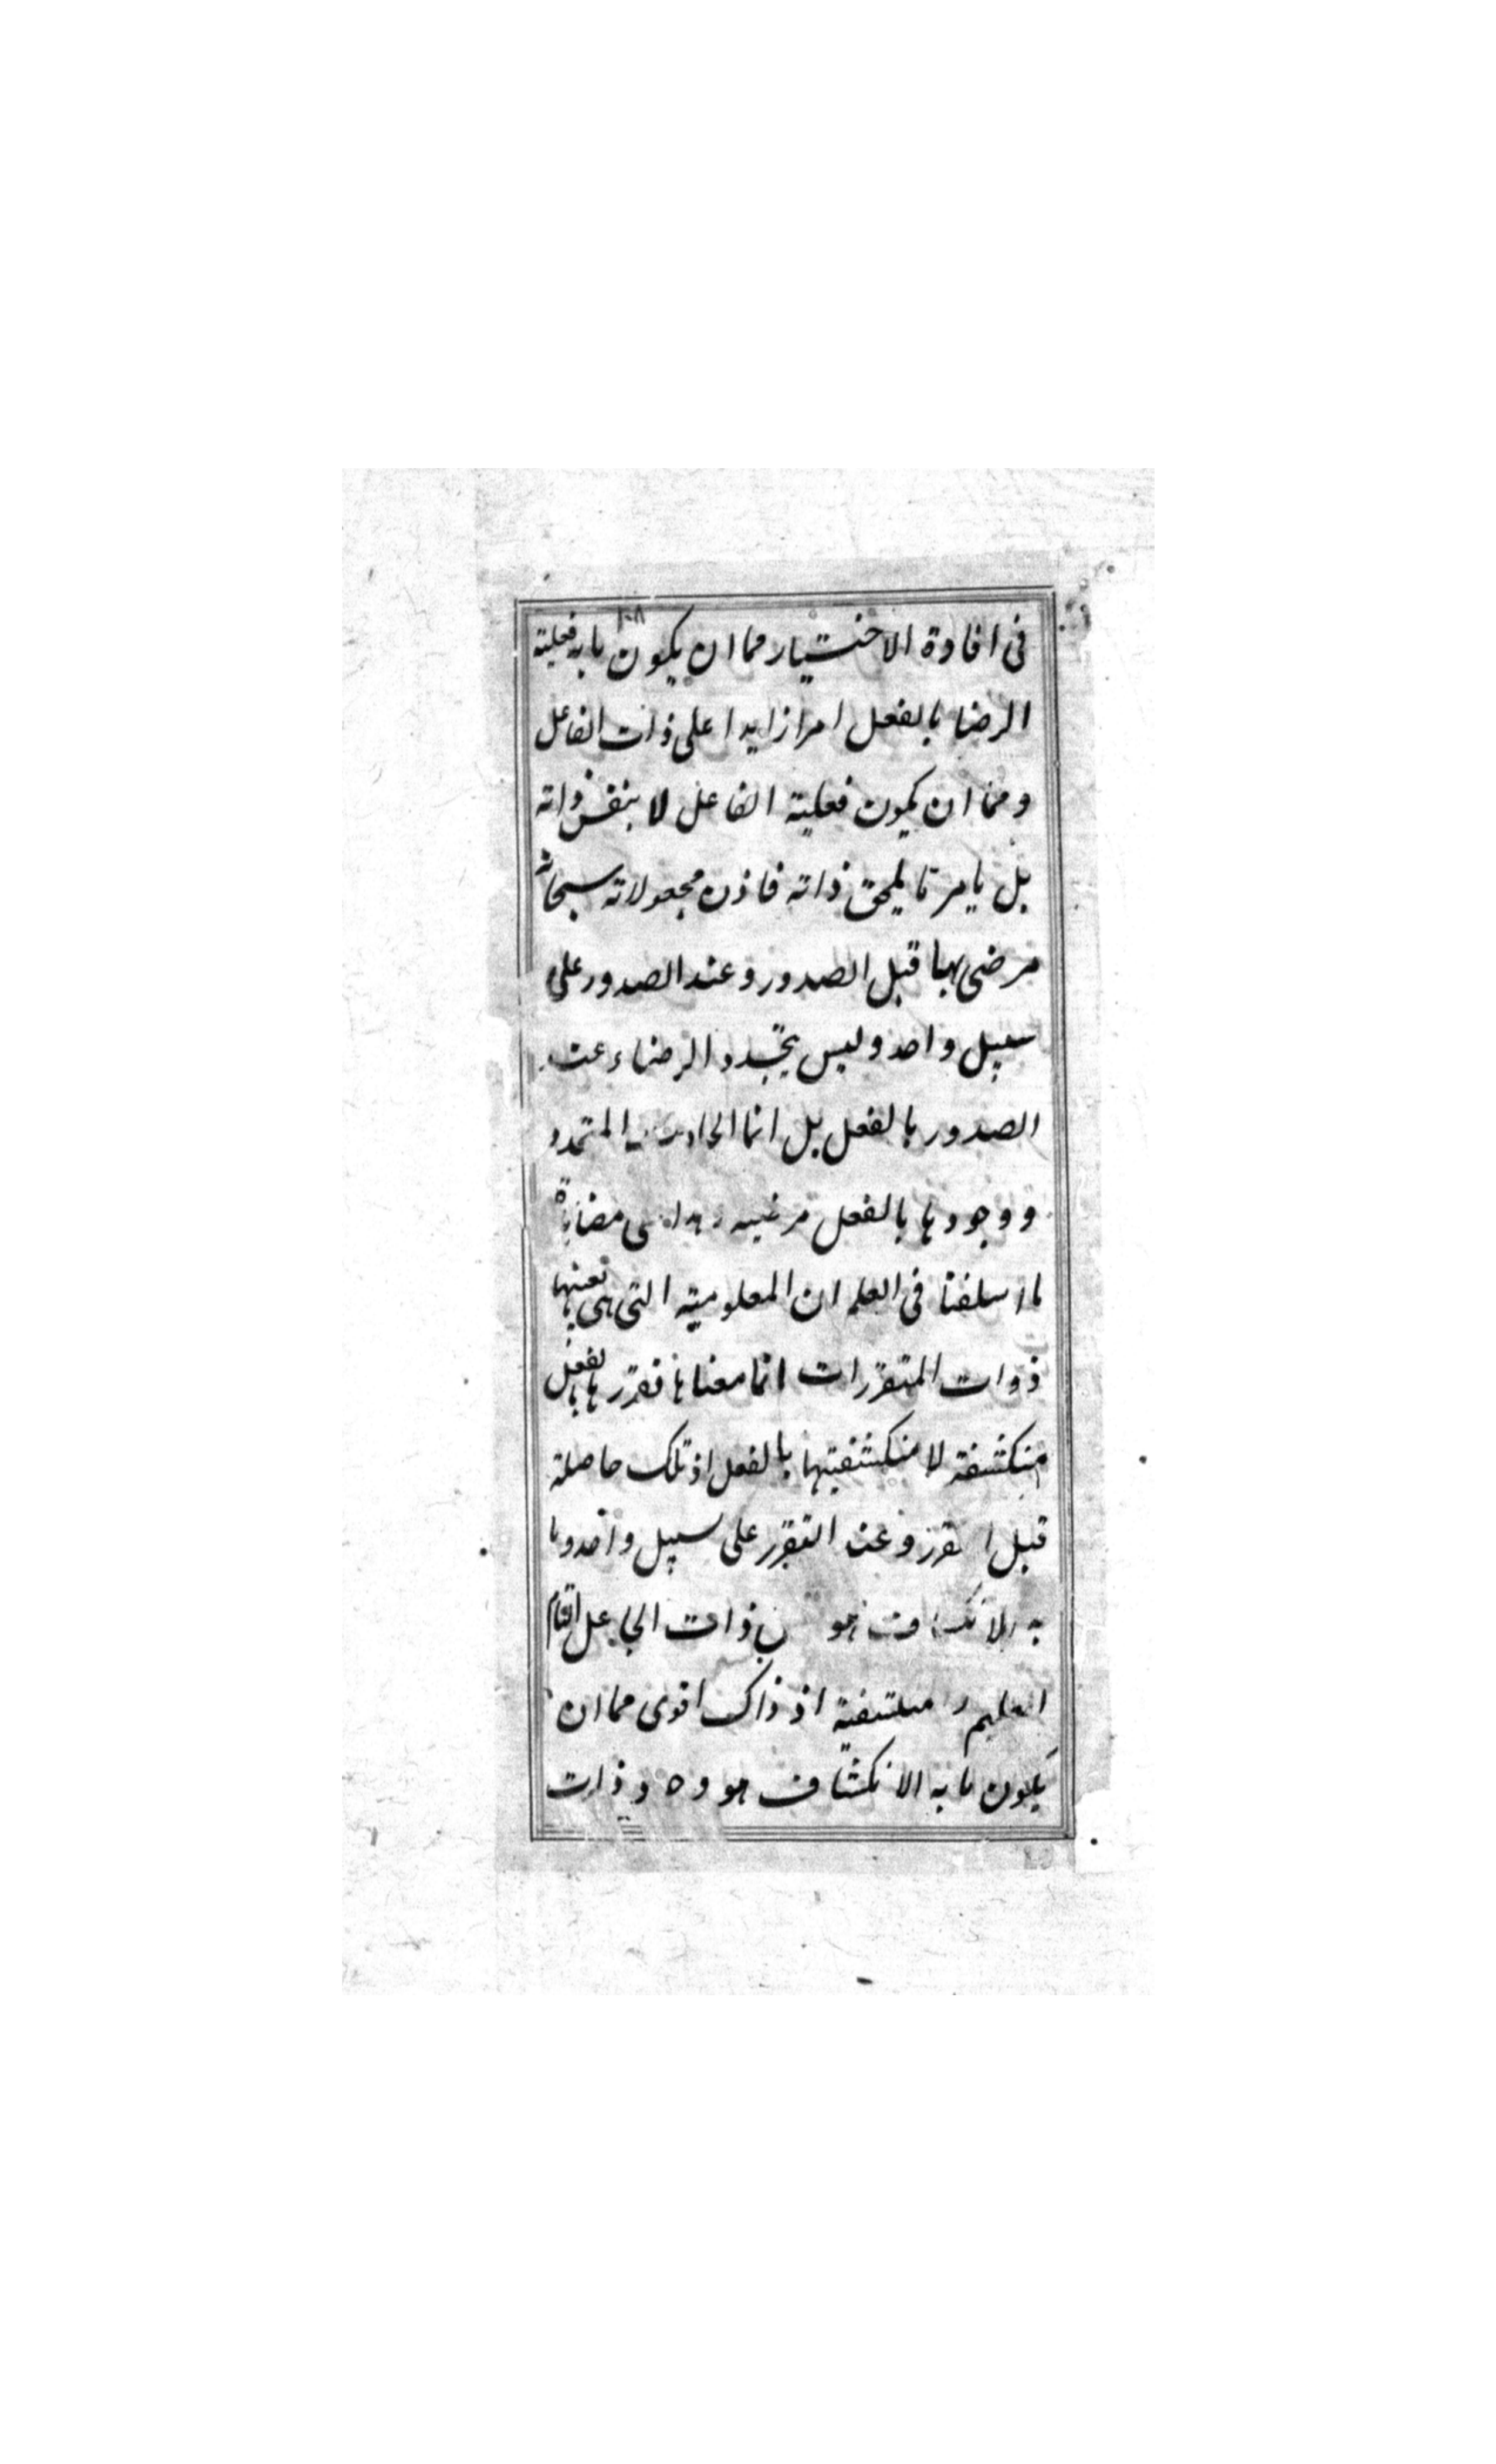 فى افادة الاختيار مما ان يكون ما به فعلية
الرضا بالفعل امرا زايدا على ذات الفاعل
ومما ان يكون فعلية الفاعل لا بنفس ذاته
بل بامر ما يلحق ذاته فاذن مجعولاته سبحانه
مرضى بها قبل الصدور وعند الصدور على
سبيل واحد وليس يتجدد الرضاء عند
الصدور بالفعل بل انما الحادث المتجدد
ووجودها بالفعل مرضيه مضاهاة
ما اسلفنا فى العلم ان المعلومية التى هى بعينها
ذوات المتقررات انما معناها تقررها بالفعل
منكشفة لا منكشفيتها بالفعل اذ تلك حاصلة
قبل التقرر وعند التقرر على سبيل واحد وما
به الانكشاف هو ذات الجاعل التام
العليم اذ ذاك اقوى مما ان
يكون ما به الانكشاف هو وجود ذات